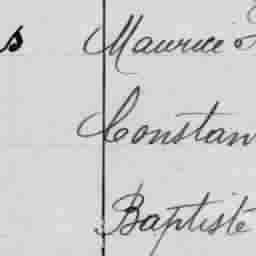 s Maurice
Constan
Baptiste